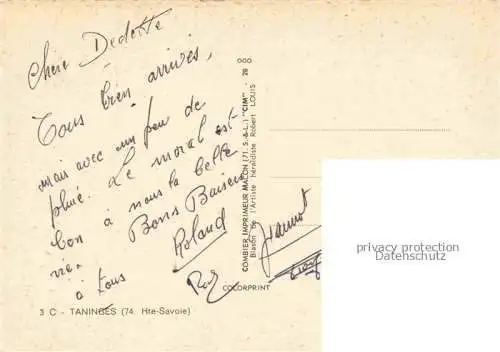 Chère Dedette
Tous bien arrivés,
mais avec un peu de
pluie. Le moral est
bon à nous la belle
vie. Bons Baisers
à tous Roland
Jeannot
3 C - TANINGES (74. Hte-Savoie)
COLORPRINT
COMBIER IMPRIMEUR MACON (71. S.-&-L.) "CIM" - 28
Blason de l'Artiste héraldiste Robert LOUIS
privacy protection
Datenschutz